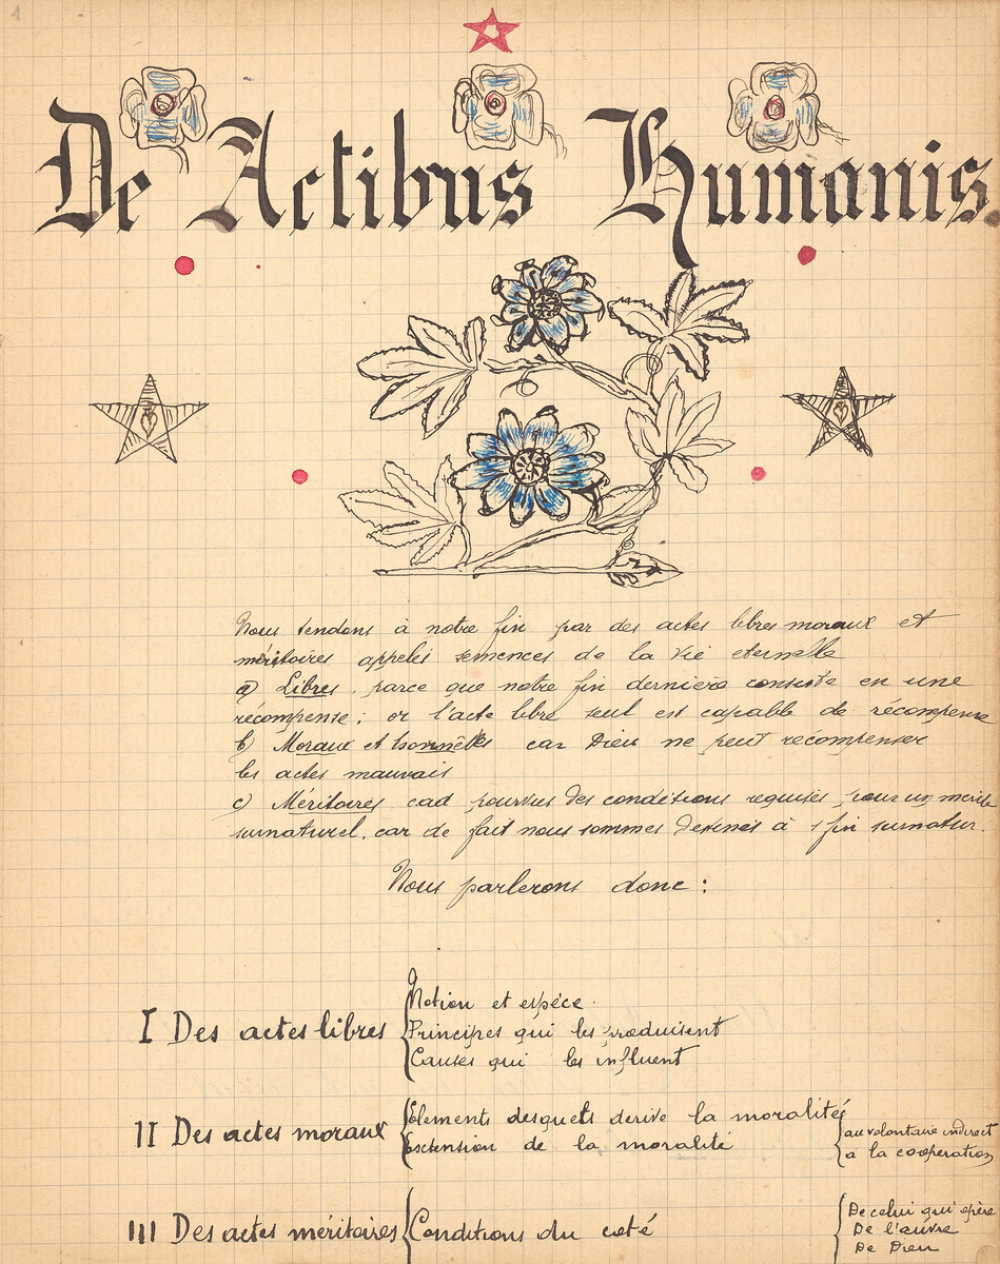 1
De Actibus Humanis
Nous tendons à notre fin par des actes libres moraux et
méritoires appelés semences de la vie eternelle
a) Libres, parce que notre fin dernière consiste en une
récompense; or l'acte libre seul est capable de récompense
b) Moraux et honnêtes car Dieu ne peut récompenser
les actes mauvais
c) Méritoires cad pourvus des conditions requises pour un mérite
surnaturel, car de fait nous sommes destinés à 1 fin surnatur.
Nous parlerons donc :
I Des actes libres
Notion et espèce.
Principes qui les produisent
Causes qui les influent
II Des actes moraux
Elements desquels derive la moralité
Extension de la moralité
au volontaire indirect
a la coopération
III Des actes méritoires
Conditions du coté
De celui qui opère
De l'œuvre
De Dieu